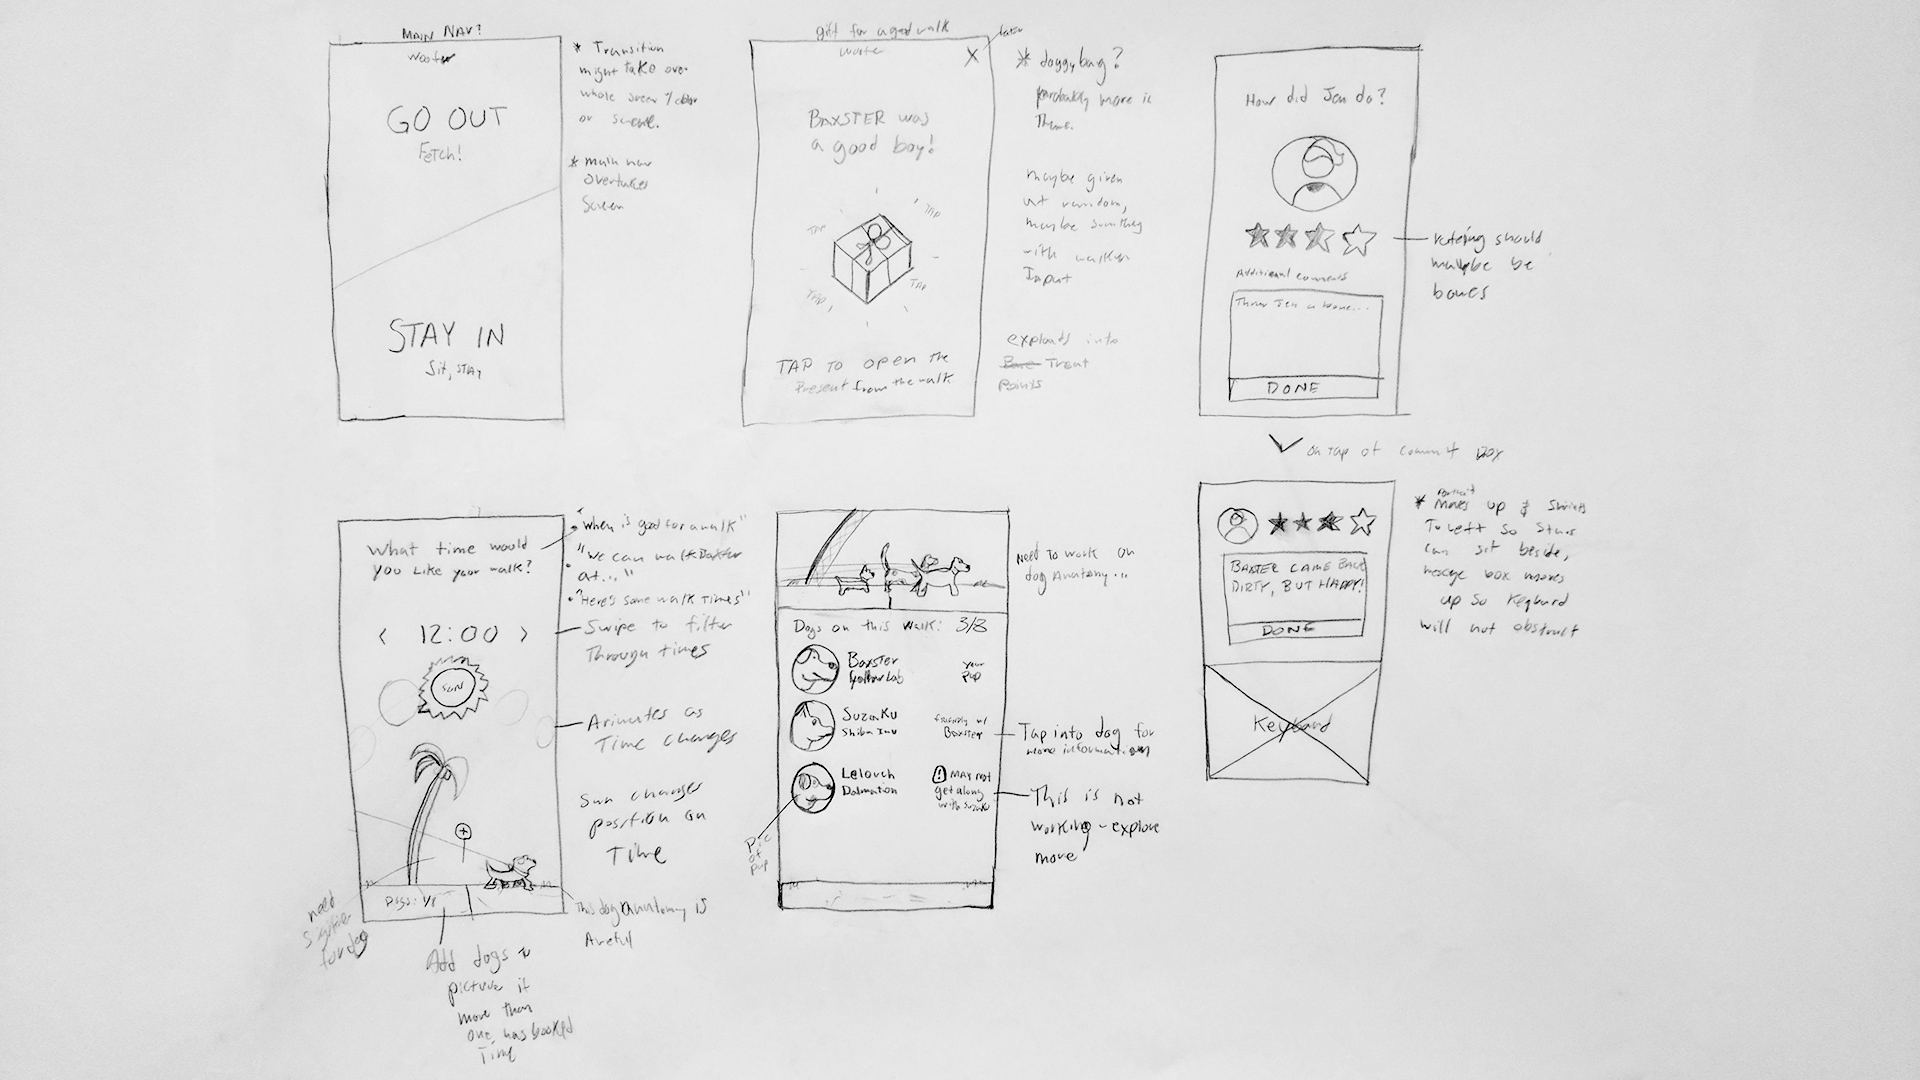 MAIN NAV?
Wooter
GO OUT
Fetch!
STAY IN
Sit, STAY
* Transition
might take over
whole screen
or
* main nav
overtakes
Screen
gift for a good walk
Wooter
X
later
BAXSTER was
a good boy!
TAP
TAP
TAP
TAP
TAP TO open the
Present from the walk
* doggy bag?
probably more in
Theme.
maybe given
at random,
maybe something
with walker
Input
explodes into
Treat
Points
How did Jen do?
Additional comments
Throw Jen a bone...
DONE
should
maybe be
bones
on tap of comment box
BAXTER CAME BACK
DIRTY, BUT HAPPY!
DONE
Keyboard
* Portrait
Moves up & Shrinks
To Left so Stars
can sit beside,
message box moves
up so Keyboard
will not obstruct
What time would
you like your walk?
< 12:00 >
SUN
Dogs: 1/8
"When is good for a walk"
"We can walk Baxter
at..."
"Here's some walk times"
Swipe to filter
Through times
Animates as
Time changes
Sun changes
position on
Time
This dog anatomy is
Awful
need
for dog
Add dogs
picture if
more than
one has booked
Time
Dogs on this walk: 3/8
Baxster
Yellow Lab
your
Pup
Suzaku
Shiba Inu
friendly w/
Baxster
Lelouch
Dalmation
! MAY not
get along
with Suzaku
Pic
of
pup
Need To work on
dog Anatomy...
Tap into dog for
more information
This is not
working - explore
more